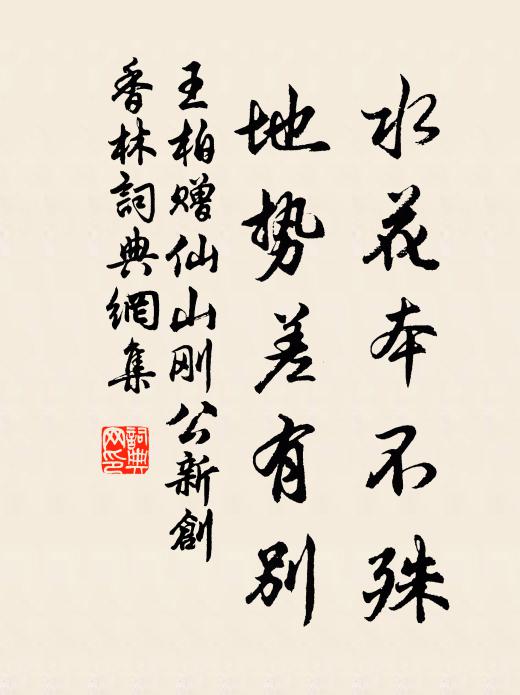 水花本不殊
地势差有别
王柏赠仙山刚公新創
香林詞典網集
詞典
网印